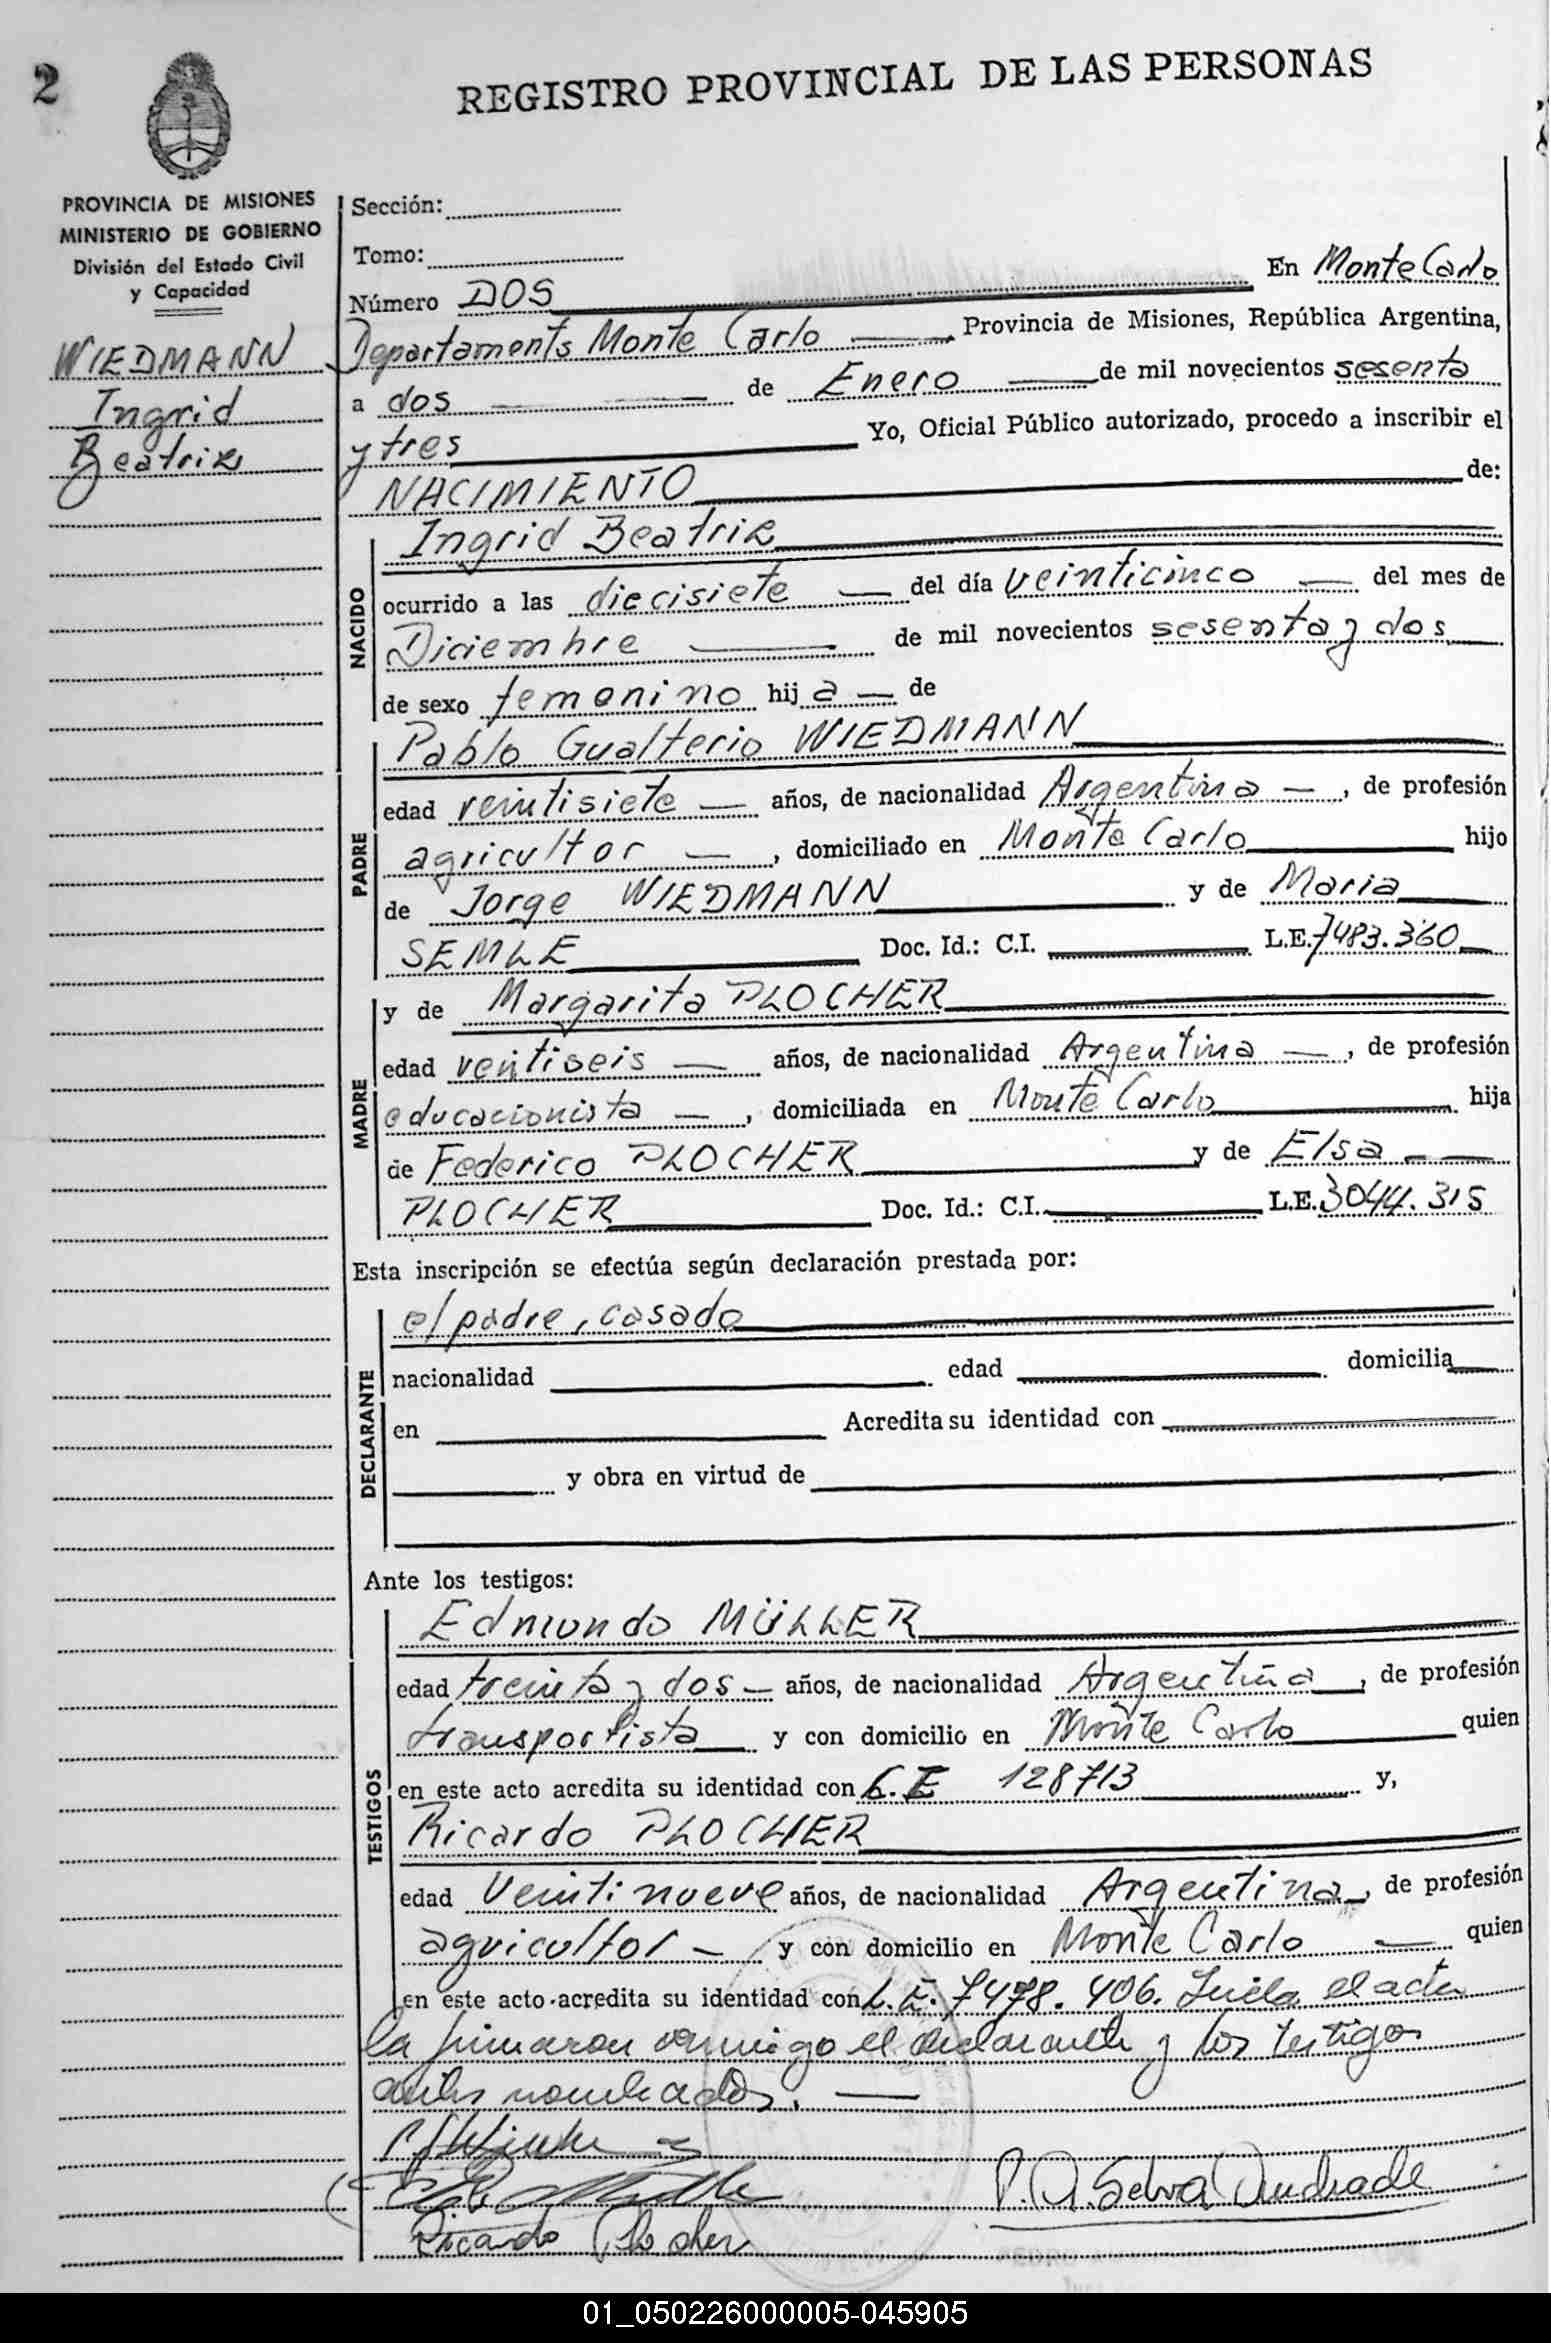 2
REGISTRO PROVINCIAL DE LAS PERSONAS
PROVINCIA DE MISIONES
MINISTERIO DE GOBIERNO
División del Estado Civil
y Capacidad
WIEDMANN
Ingrid
Beatriz
Sección:
Tomo:
Número DOS En Monte Carlo
Departamento Monte Carlo Provincia de Misiones, República Argentina,
a dos de Enero de mil novecientos sesenta
y tres Yo, Oficial Público autorizado, procedo a inscribir el
NACIMIENTO de:
NACIDO
Ingrid Beatriz
ocurrido a las diecisiete del día veinticinco del mes de
Diciembre de mil novecientos sesenta y dos
de sexo femenino hij a de
PADRE
Pablo Gualterio WIEDMANN
edad veintisiete años, de nacionalidad Argentina, de profesión
agricultor, domiciliado en Monte Carlo hijo
de Jorge WIEDMANN y de Maria
SEMLE Doc. Id.: C.I. L.E. 7483.360
MADRE
y de Margarita PLOCHER
edad ventiseis años, de nacionalidad Argentina, de profesión
educacionista, domiciliada en Monte Carlo hija
de Federico PLOCHER y de Elsa
PLOCHER Doc. Id.: C.I. L.E. 3044.315
Esta inscripción se efectúa según declaración prestada por:
DECLARANTE
el padre, casado
nacionalidad edad domicilia
en Acredita su identidad con
y obra en virtud de
Ante los testigos:
TESTIGOS
Edmundo MÜLLER
edad treinta y dos años, de nacionalidad Argentina, de profesión
transportista y con domicilio en Monte Carlo quien
en este acto acredita su identidad con C.I 128713 y,
Ricardo PLOCHER
edad Veintinueve años, de nacionalidad Argentina, de profesión
agricultor y con domicilio en Monte Carlo quien
en este acto acredita su identidad con L.E. 7478.406. Leída el acta
la firmaron conmigo el declarante y los testigos
antes nombrados.
P. A. Selva Andrade
Ricardo Plocher
01_050226000005-045905